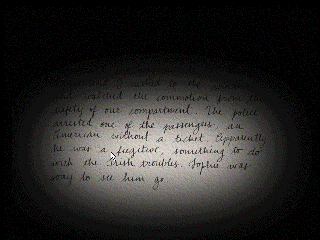 and watched the commotion from the
safety of our compartment. The police
arrested one of the passengers, an
American without a ticket. Apparently
he was a fugitive, something to do
with the Irish troubles. Sophie was
sorry to see him go.